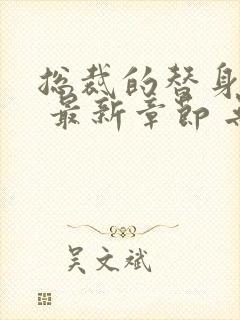 总裁的替身
最新章节
吴文斌